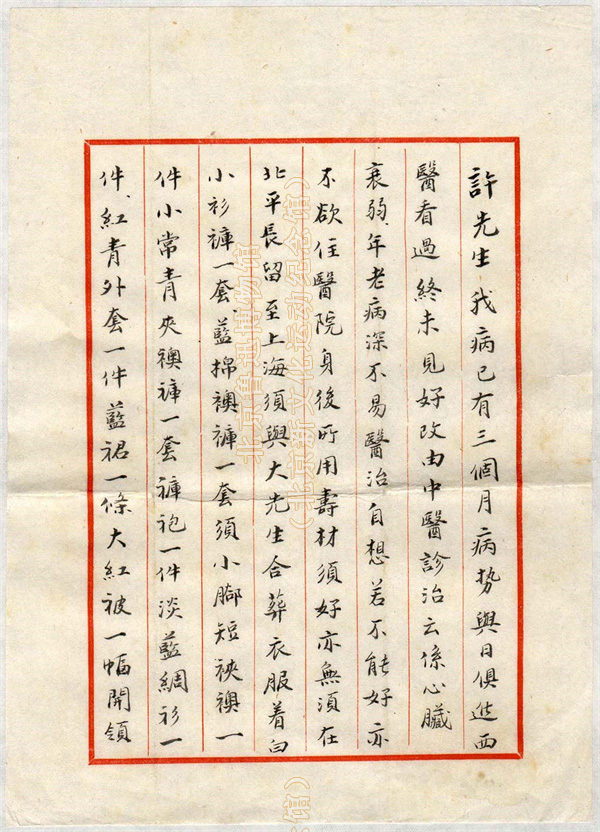 許先生我病已有三個月病势與日俱進西
醫看過終未見好改由中醫診治云係心臟
衰弱、年老病深不易醫治自想若不能好亦
不欲住醫院身後所用壽材須好亦無須在
北平長留至上海須與大先生合葬衣服着白
小衫褲一套、藍棉襖褲一套須小腳短裌襖一
件小常青夾襖褲一套褲袍一件淡藍綢衫一
件、紅青外套一件藍裙一條大紅被一幅開領
北京鲁迅博物馆
（北京新文化运动纪念馆）